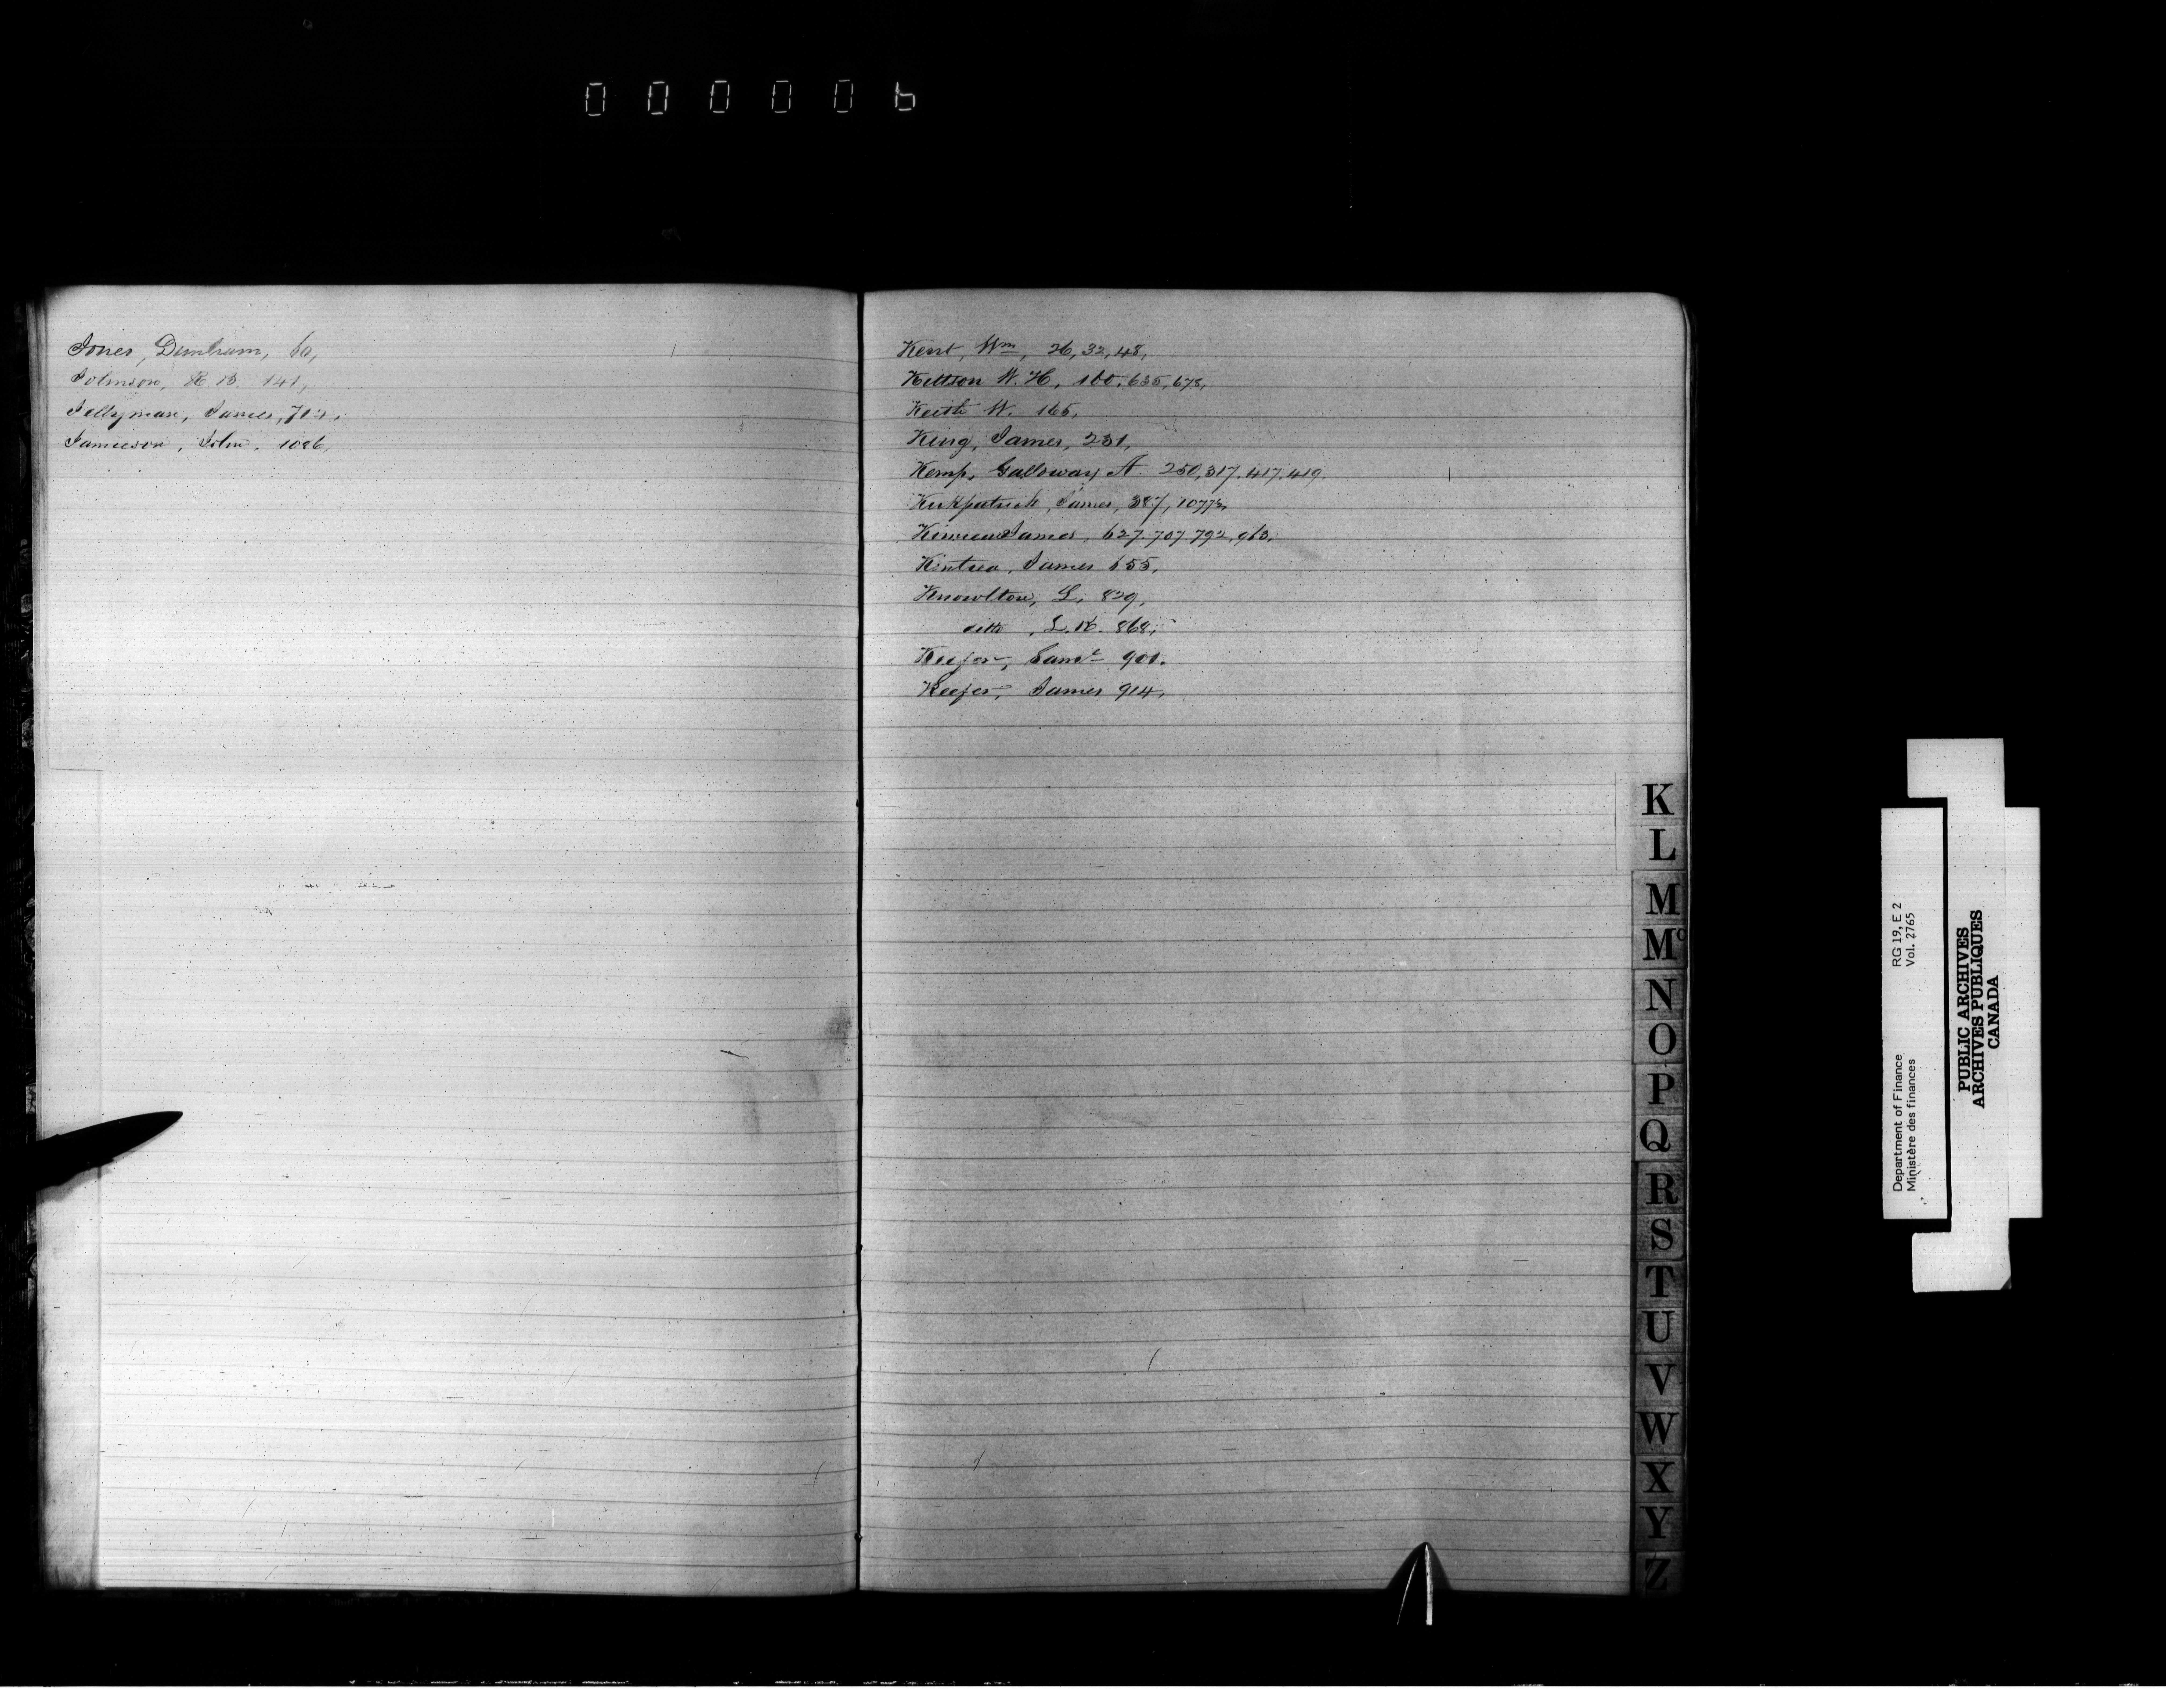 000006
Jones, Dunham, 60,
Johnson, R. B. 141,
Jellyman, James, 702,
Jamieson, John, 1086,
Kent, Wm, 26, 32, 48,
Kittson W. H, 160, 635, 678,
Keith W. 165,
King, James, 231,
Kemp, Galloway A. 250, 317, 417, 419.
Kirkpatrick, James, 387,
James, 627. 707. 792, 963,
Kintrea, James 655,
Knowlton, L, 829,
ditto, L. K. 868,
Keefer, Saml 900.
Keefer, James 914,
K
L
M
Mc
N
O
P
Q
R
S
T
U
V
W
X
Y
Z
Department of Finance RG 19, E 2
Ministère des finances Vol. 2765
PUBLIC ARCHIVES
ARCHIVES PUBLIQUES
CANADA